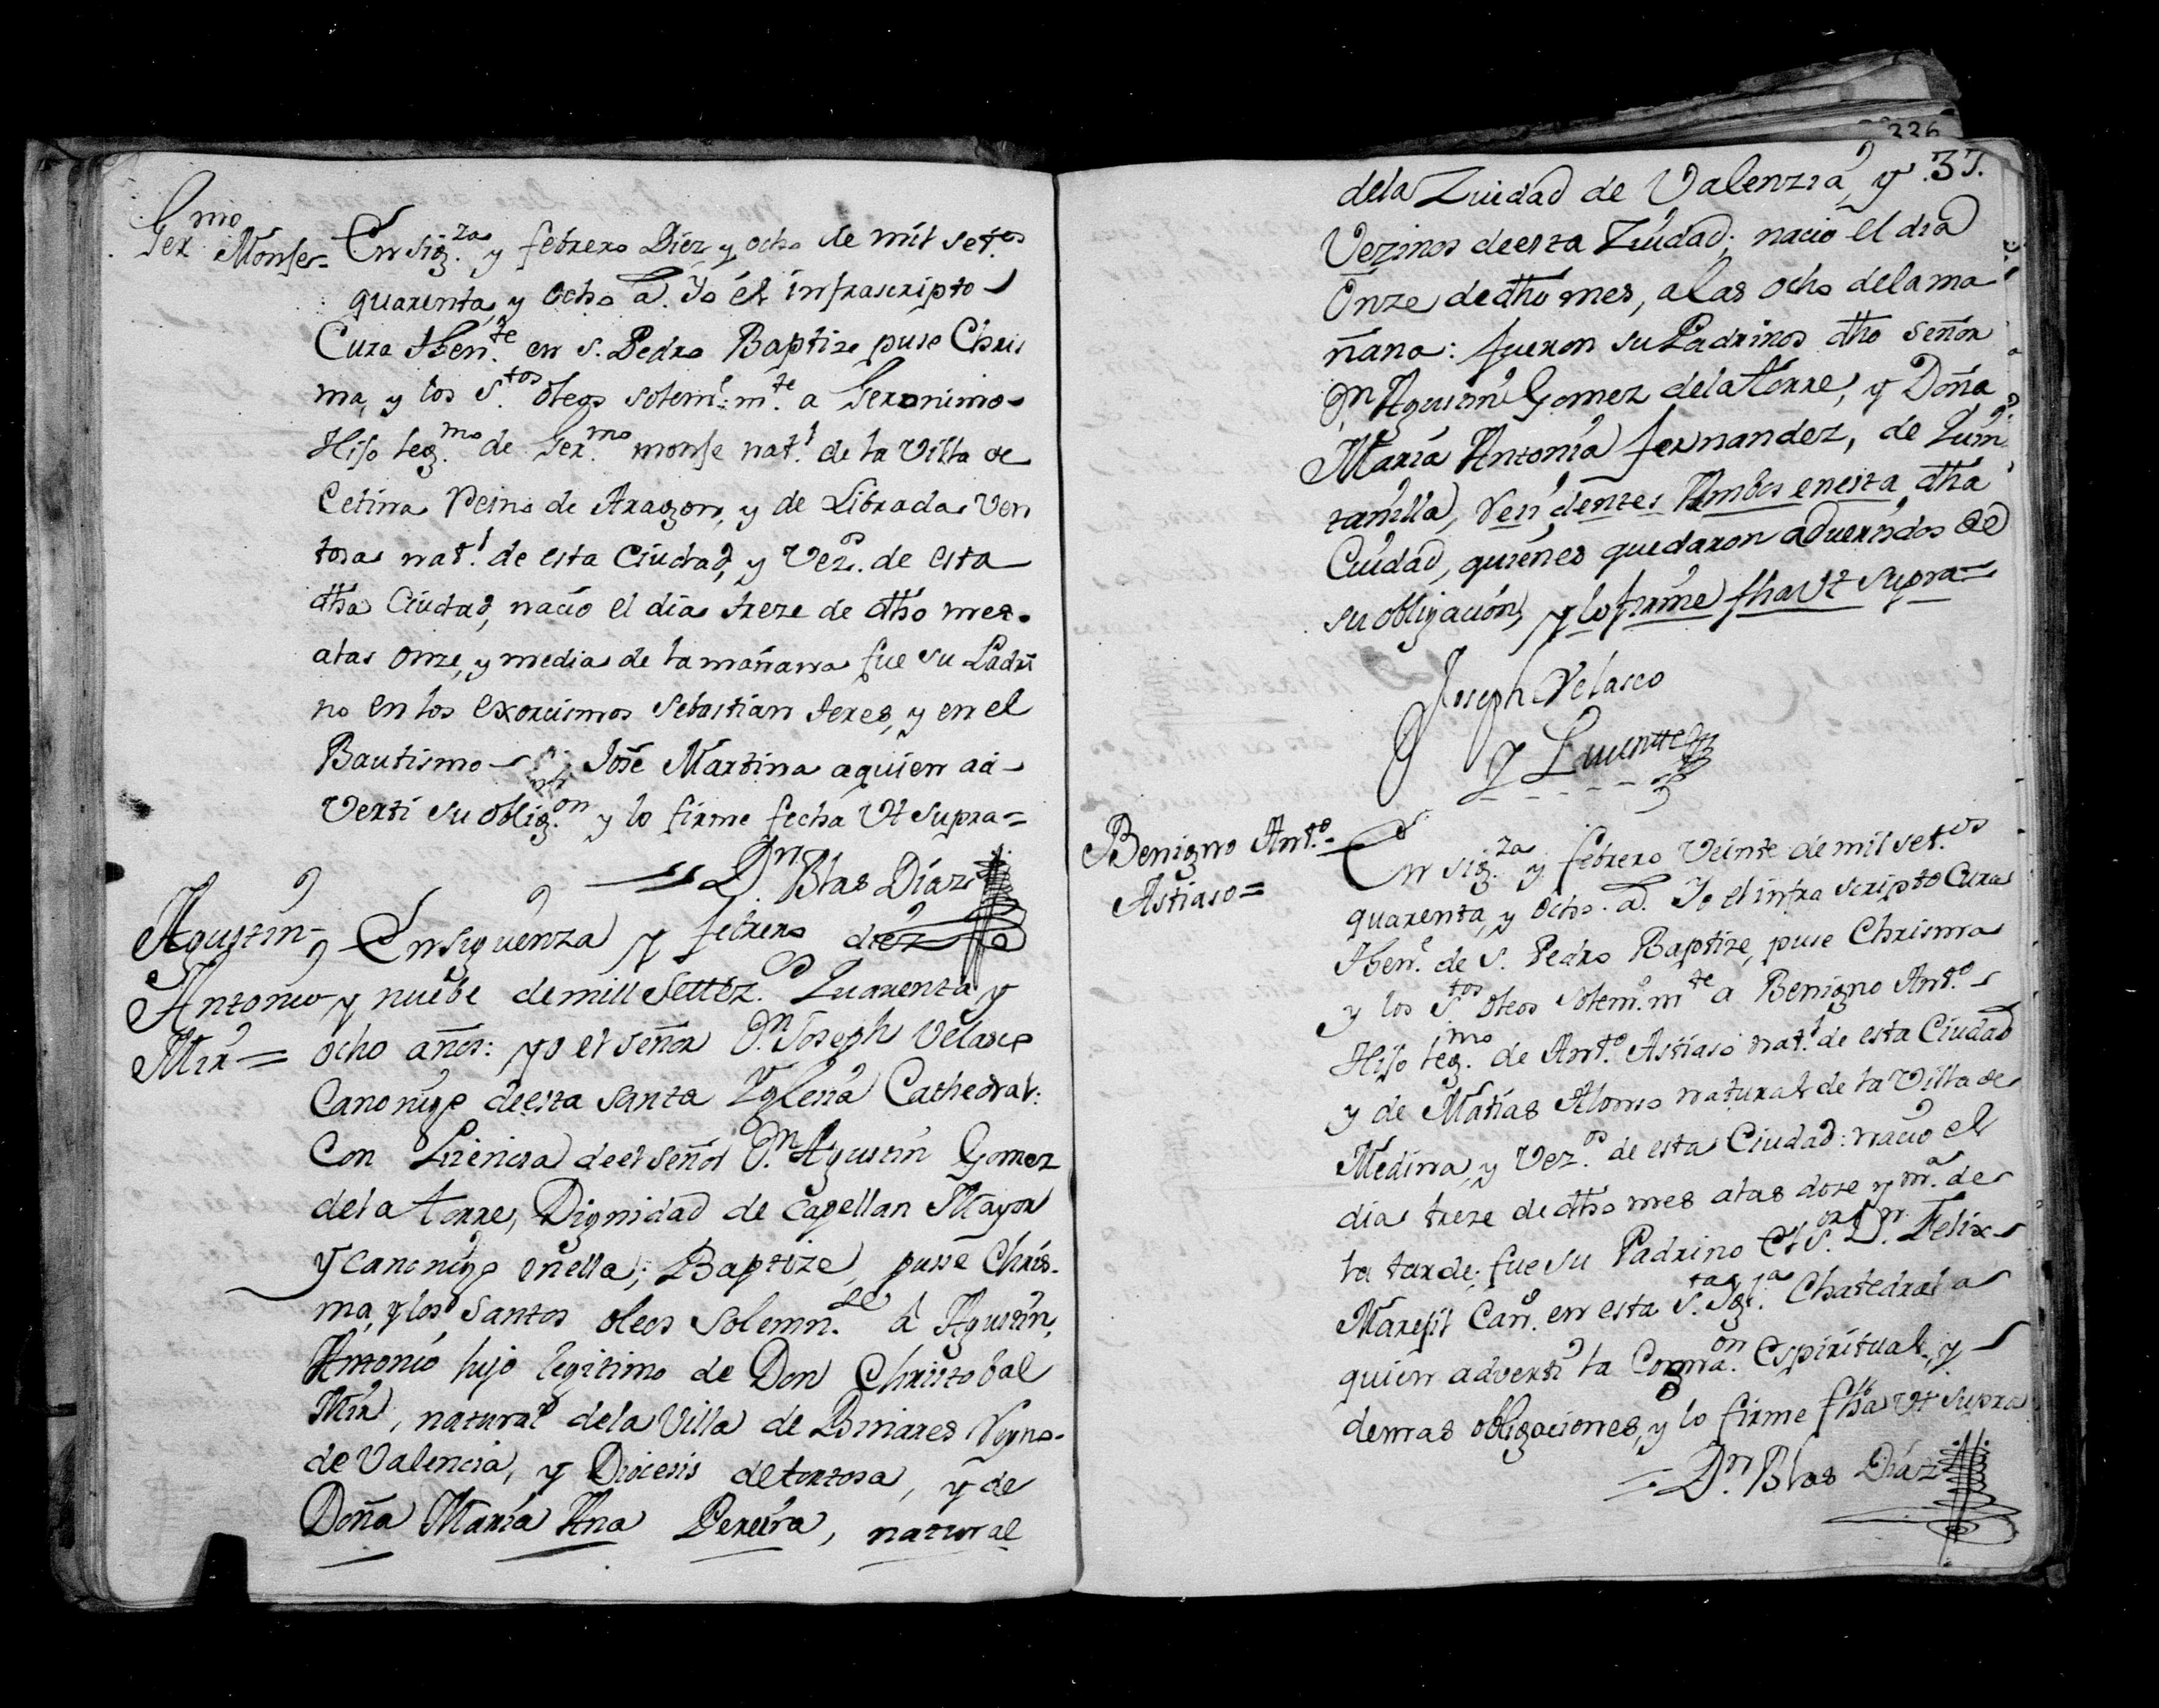 Ger.mo Monse=
En Sig.za y febrero Diez y ocho de mil set.os
quarenta, y ocho a. Yo el infrascripto
Cura Then.te en S. Pedro Baptize puse Chris
ma, y los S.tos oleos solem.mte a Geronimo
Hijo leg.mo de Ger.mo monse nat.l de la Villa de
Cetina Reino de Aragon, y de Librada Ven
tosa nat.l de esta Ciudad, y Vez.os de esta
dha Ciudad, nacio el dia treze de dho mes.
alas onze, y media de la mañana fue su Padri
no en los exorcismos Sebastian Jeres, y en el
Bautismo Jose Martina aquien ad
Verti su oblig.on y lo firme fecha Vt Supra=
Dn Blas Díaz
Agustin
Antonio
Mir=
En siguenza y febrero diez
y nuebe de mill settez.os Quarenta y
ocho años: yo el señor Dn Joseph Velasco
Canonigo de esta Santa Yglesia Cathedral:
Con Lizencia de el señor Dn Agustin Gomez
dela torre, Dignidad de Capellan Mayor
y canonigo en ella; Baptize, pusse Chris-
ma, y los santos oleos solemn.te á Agustin,
Antonio hijo legitimo de Don Christobal
Mir, natural de la Villa de Linares Reyno
de Valencia, y Diocesis de tortosa, y de
Doña María Ana Pereira, natural
336
37.
dela Ziudad de Valenzia, y
Vezinos de esta Ziudad; nacio el dia
Onze de dho mes, a las ocho dela ma
ñana: fueron su Padrinos dho señor
Dn Agustin Gomez dela torre, y Doña
María Antonia fernandez, de Quin
tanilla, Residentes Ambos en esta dha
Ciudad, quienes quedaron advertidos de
su obligación, y lo firme fha Vt Supra=
Joseph Velasco
y
Benigno Ant.o
Astiaso=
En Sig.za y febrero Veinte de mil set.os
quarenta, y ocho a. Yo el infra scripto Cura
Then.e de S. Pedro Baptize, puse Chrisma
y los S.tos oleos solem.mte a Benigno Ant.o
Hijo leg.mo de Ant.o Astiaso nat.l de esta Ciudad
y de Matias Alonso natural de la Villa de
Medina, y Vez.os de esta Ciudad: nacio el
dia treze de dho mes alas doze y m.a de
la tarde; fue su Padrino El S.or Dn Felix
Marefil Can.o en esta S.ta Igl.a Chatedral a
quien adverti la Cogna.on Espiritual, y
demas obligaciones, y lo firme fha Vt Supra
=Dn Blas Díaz